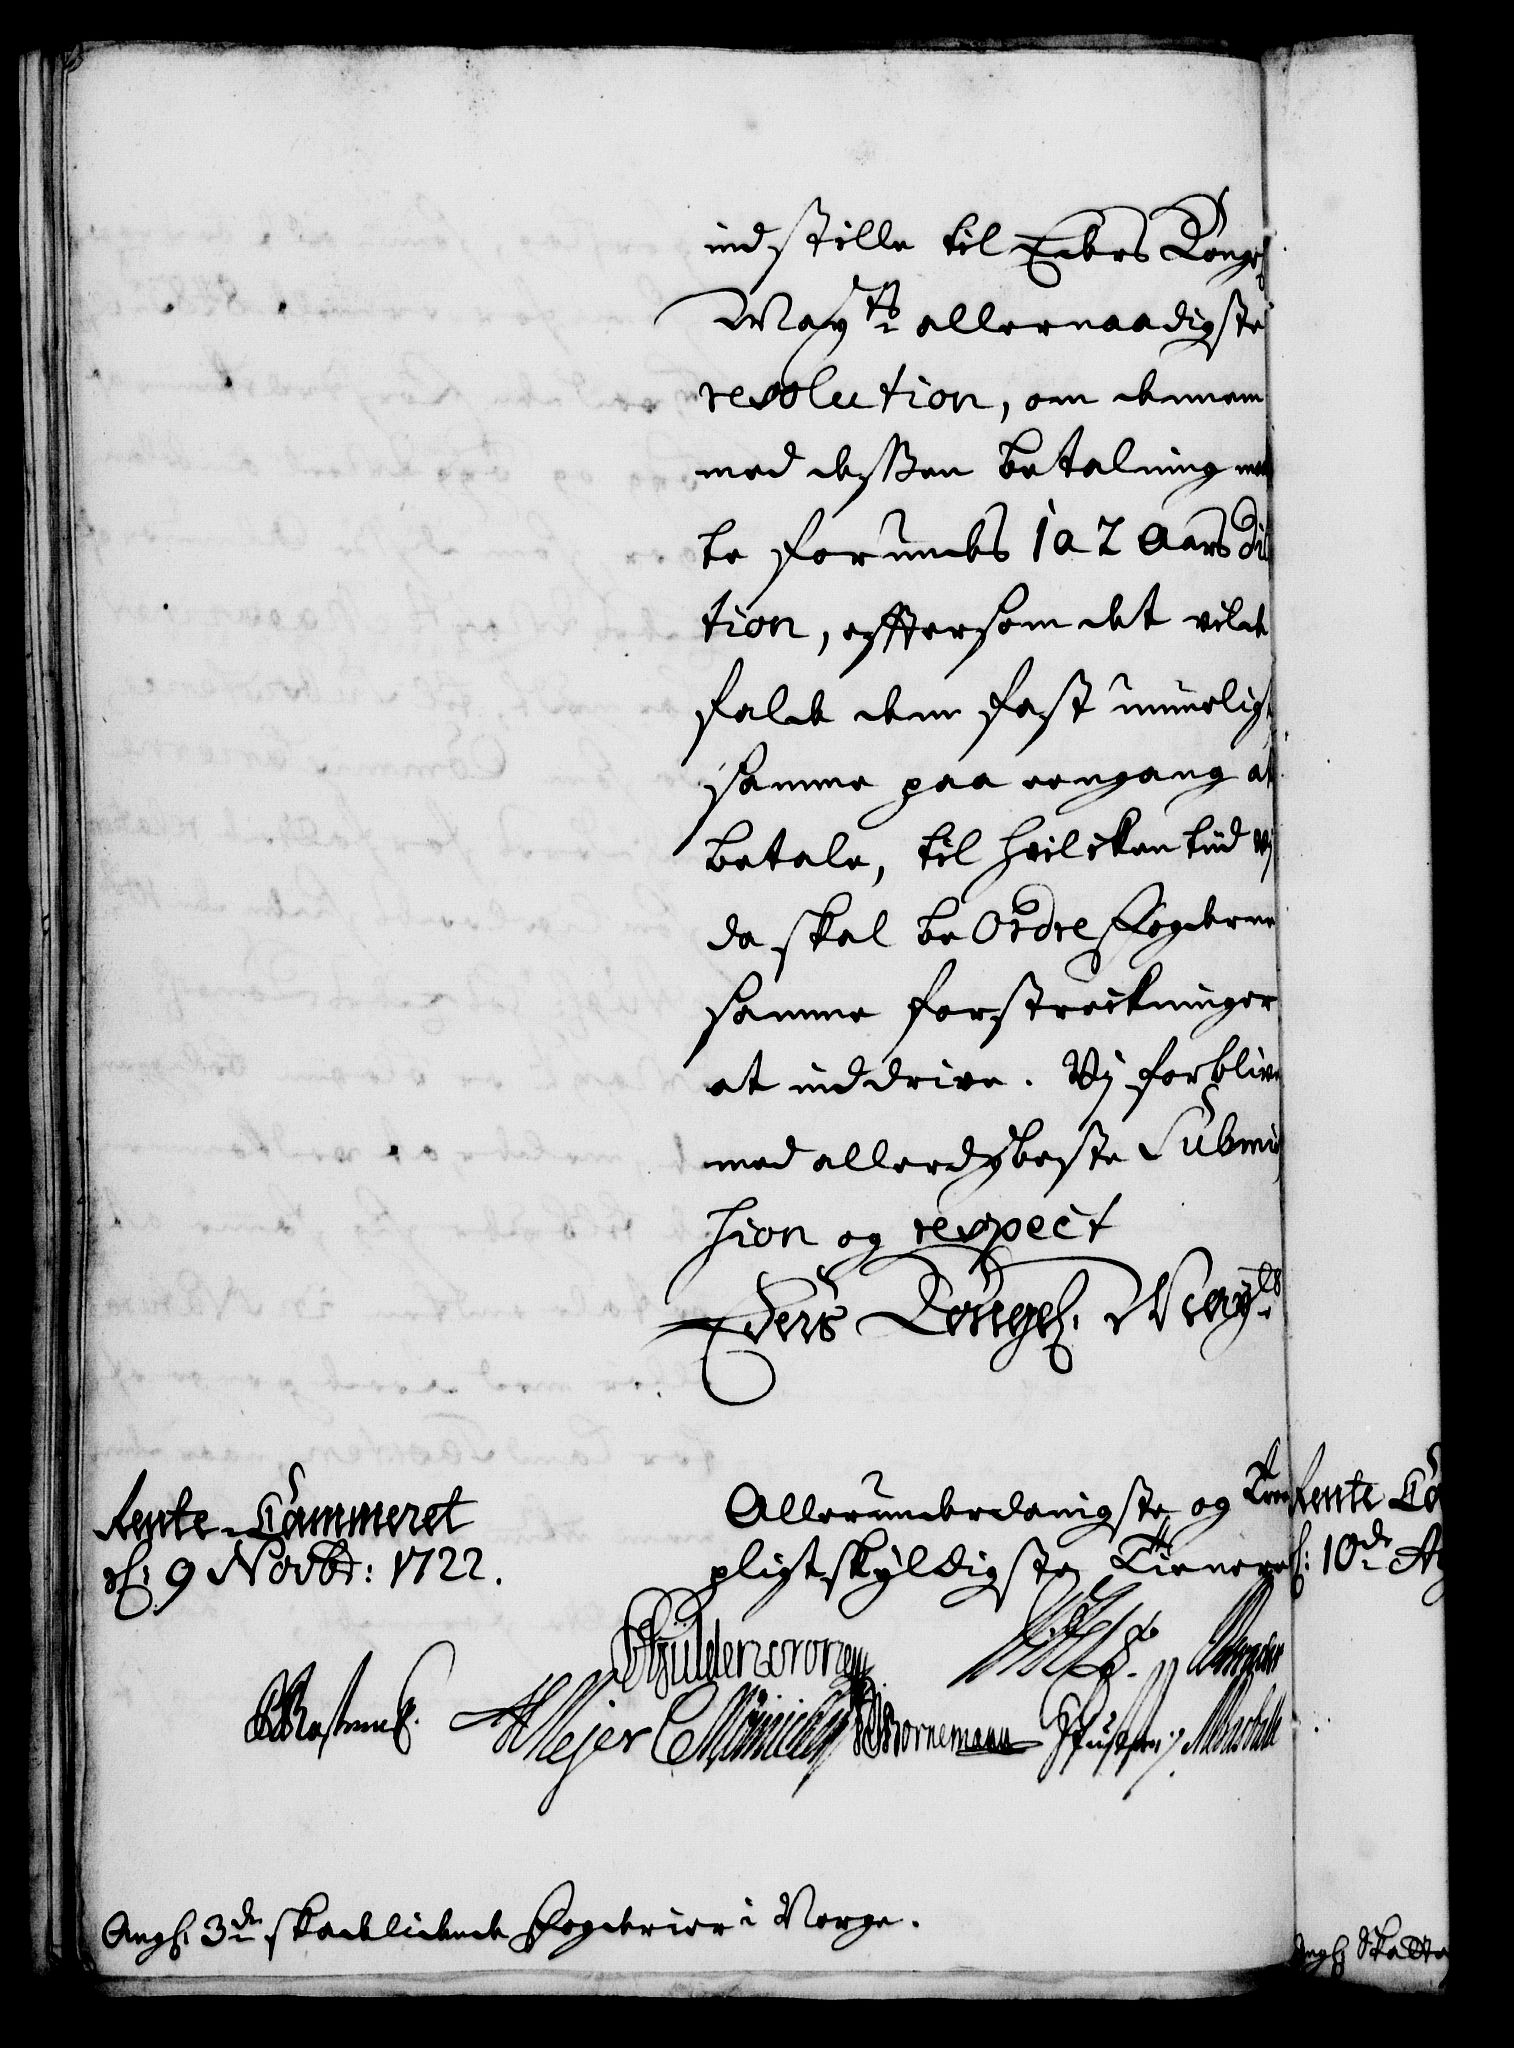 indstille til Eders Kongel
Mayts allernaadigste
resolution, om dennem
med dessen betalning maa
te forundes 1 a 2 Aars Dila
tion, efftersom det vilde
falde dem fast umuelig
samme paa eengang at
betale, til hvilcken tiid vj
da skal beOrdre fogderne
samme forstreckninger
at inddrive. Vj forblive
med allerdybeste Submis
sion og respect
Eders Kongel. Mayts
Allerunderdanigste og Troe
pligtskyldigste Tienere
Rente-Cammeret
d: 9 Novbr: 1722.
Güldencrone
Mejer
Bornemann
Angl. 3de skadelidende Fogderier i Norge.
Rente Ca
d: 10de
Angl Skatte